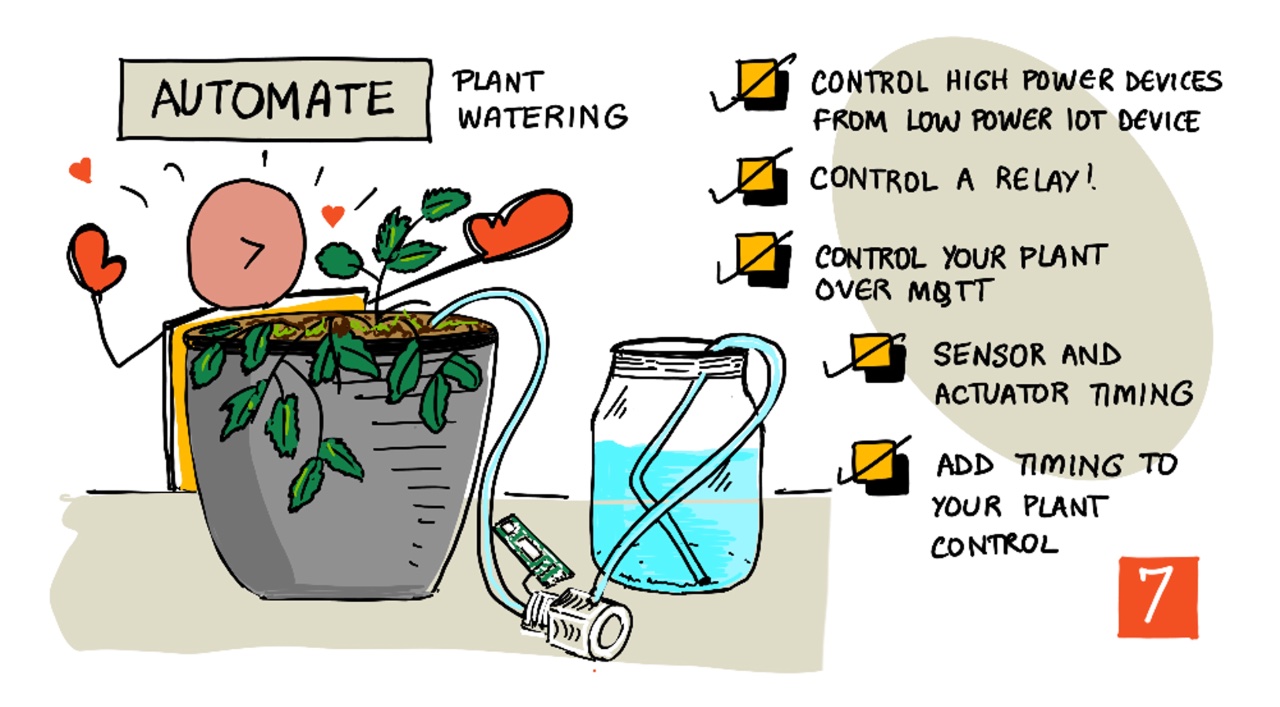 AUTOMATE
PLANT
WATERING
CONTROL HIGH POWER DEVICES
FROM LOW POWER IOT DEVICE
CONTROL A RELAY!
CONTROL YOUR PLANT
OVER MQTT
SENSOR AND
ACTUATOR TIMING
ADD TIMING TO
YOUR PLANT
CONTROL
7